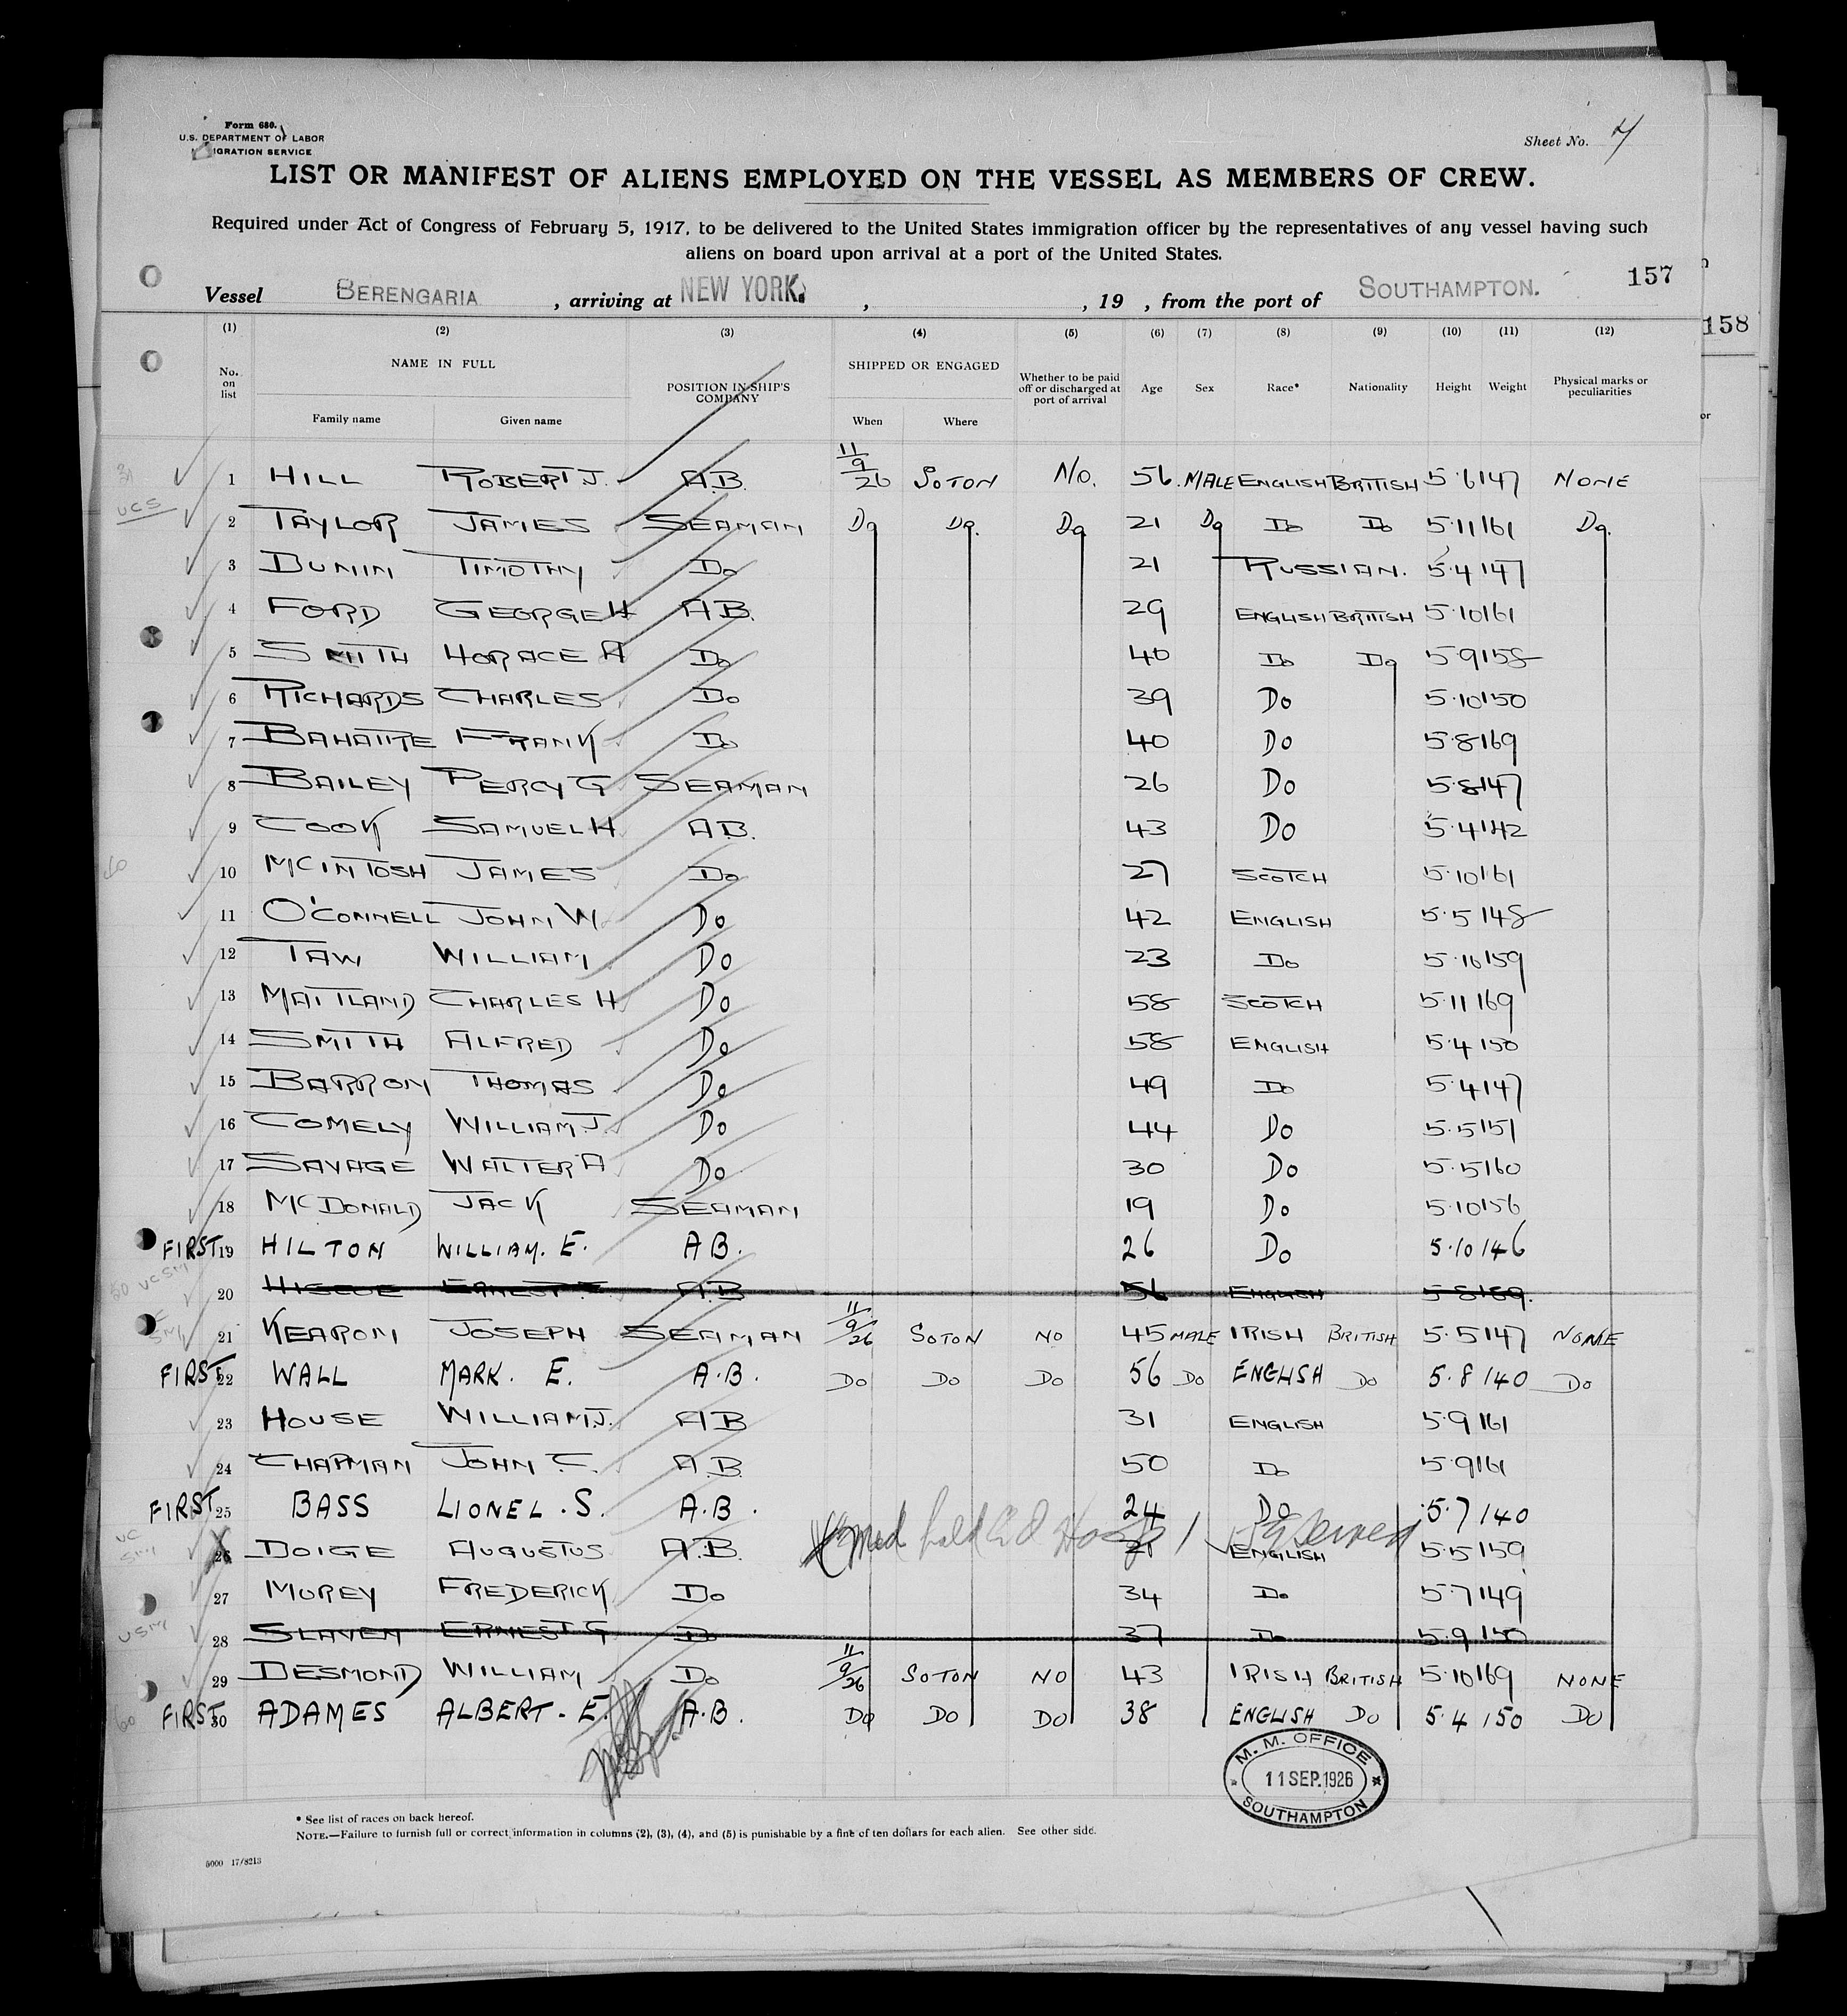 Form 680.
U.S. DEPARTMENT OF LABOR
IGRATION SERVICE
Sheet No. 4
LIST OR MANIFEST OF ALIENS EMPLOYED ON THE VESSEL AS MEMBERS OF CREW.
Required under Act of Congress of February 5, 1917, to be delivered to the United States immigration officer by the representatives of any vessel having such
aliens on board upon arrival at a port of the United States.
157
Vessel BERENGARIA , arriving at NEW YORK. , , 19 , from the port of SOUTHAMPTON.
158
(1) (2) (3) (4) (5) (6) (7) (8) (9) (10) (11) (12)
No. on list NAME IN FULL Family name Given name POSITION IN SHIP'S COMPANY SHIPPED OR ENGAGED When Where Whether to be paid off or discharged at port of arrival Age Sex Race* Nationality Height Weight Physical marks or peculiarities
1 HILL ROBERT J. A.B. 11/9/26 SOTON NO. 56 MALE ENGLISH BRITISH 5·6 147 NONE
2 TAYLOR JAMES SEAMAN Do Do Do 21 Do Do Do 5·11 161 Do
3 BUNIN TIMOTHY Do 21 RUSSIAN. 5·4 147
4 FORD GEORGE H A.B. 29 ENGLISH BRITISH 5·10 161
5 SMITH HORACE A Do 40 Do Do 5·9 158
6 RICHARDS CHARLES Do 39 Do 5·10 150
7 FRANK Do 40 Do 5·8 169
8 BAILEY PERCY G SEAMAN 26 Do 5·8 147
9 COOK SAMUEL H A.B. 43 Do 5·4 142
10 MCINTOSH JAMES Do 27 SCOTCH 5·10 161
11 O'CONNELL JOHN W. Do 42 ENGLISH 5·5 148
12 TAW WILLIAM Do 23 Do 5·10 159
13 MAITLAND CHARLES H Do 58 SCOTCH 5·11 169
14 SMITH ALFRED Do 58 ENGLISH 5·4 150
15 BARRON THOMAS Do 49 Do 5·4 147
16 COMELY WILLIAM J. Do 44 Do 5·5 151
17 SAVAGE WALTER A Do 30 Do 5·5 160
18 MCDONALD JACK SEAMAN 19 Do 5·10 156
FIRST 19 HILTON WILLIAM. E. A B. 26 Do 5·10 146
20 HISCOE ERNEST A.B 56 ENGLISH 5·8 189.
21 KEARON JOSEPH SEAMAN 11/9/26 SOTON NO 45 MALE IRISH BRITISH 5·5 147 NONE
FIRST 22 WALL MARK. E. A.B. Do Do Do 56 Do ENGLISH Do 5·8 140 Do
23 HOUSE WILLIAM J. A B 31 ENGLISH 5·9 161
24 CHAPMAN JOHN C. A.B. 50 Do 5·9 161
FIRST 25 BASS LIONEL. S. A.B. 24 Do 5·7 140
26 DOIGE AUGUSTUS A.B. ENGLISH 5·5 159
27 MOREY FREDERICK Do 34 Do 5·7 149
28 SLAVEN ERNEST G Do 37 Do 5·9 150
29 DESMOND WILLIAM Do 11/9/26 SOTON NO 43 IRISH BRITISH 5·10 169 NONE
FIRST 30 ADAMES ALBERT. E. A.B. Do Do Do 38 ENGLISH Do 5·4 150 Do
M. M. OFFICE
11 SEP. 1926
SOUTHAMPTON
* See list of races on back hereof.
NOTE.—Failure to furnish full or correct information in columns (2), (3), (4), and (5) is punishable by a fine of ten dollars for each alien. See other side.
5000 17/8213